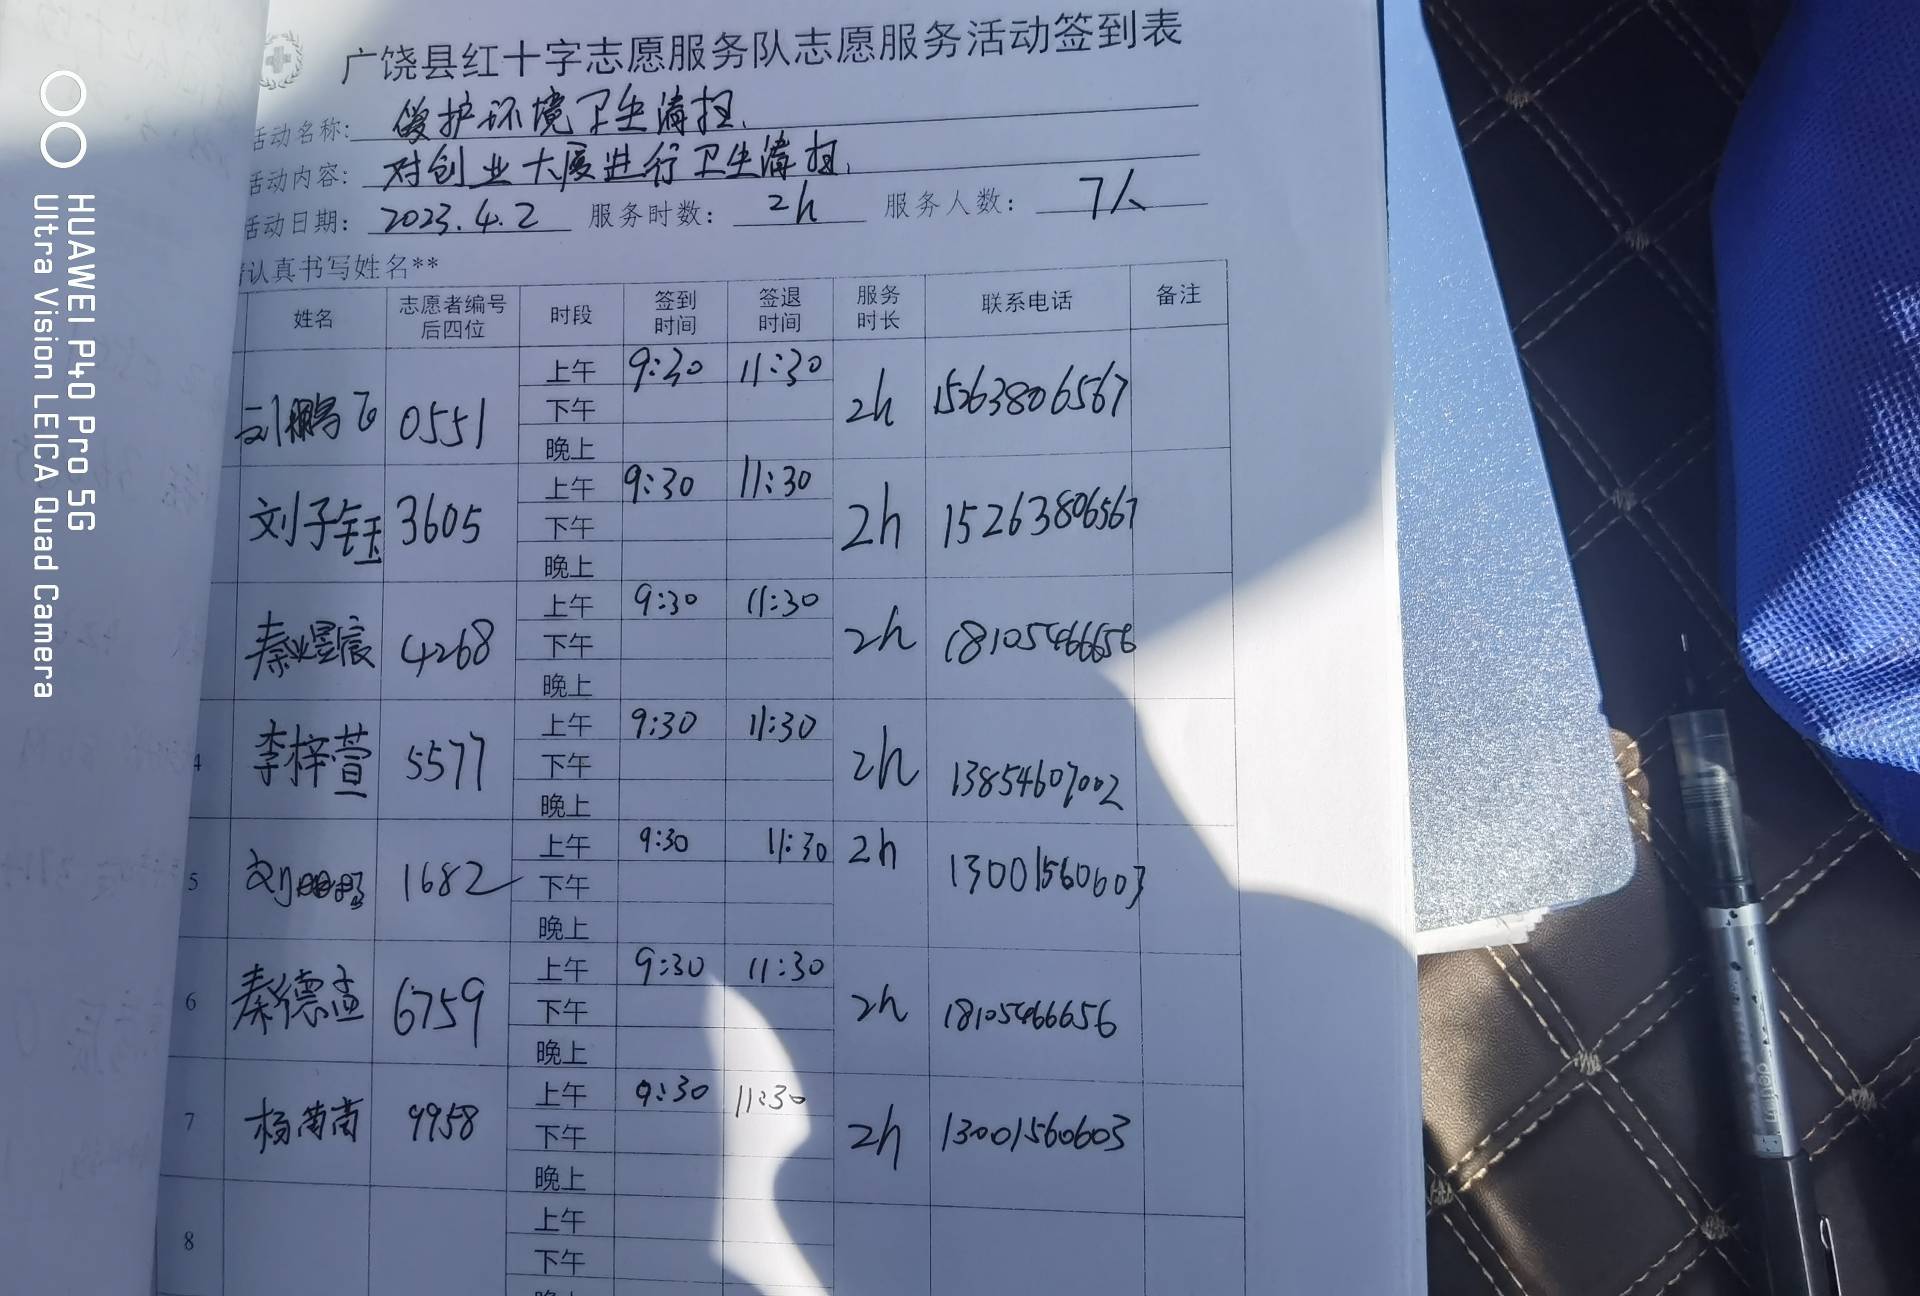 广饶县红十字志愿服务队志愿服务活动签到表
活动名称: 爱护环境卫生清扫.
活动内容: 对创业大厦进行卫生清扫.
活动日期: 2023.4.2 服务时数: 2h 服务人数: 7人
请认真书写姓名**
姓名 志愿者编号后四位 时段 签到时间 签退时间 服务时长 联系电话 备注
刘鹏飞 0551 上午 9:30 11:30 2h 15263806567
下午
晚上
刘子钰 3605 上午 9:30 11:30 2h 15263806567
下午
晚上
秦昱宸 4268 上午 9:30 11:30 2h 18105466656
下午
晚上
4 李梓萱 5577 上午 9:30 11:30 2h 13854607002
下午
晚上
5 刘 1682 上午 9:30 11:30 2h 13001560603
下午
晚上
6 秦德孟 6759 上午 9:30 11:30 2h 18105466656
下午
晚上
7 杨 9958 上午 9:30 11:30 2h 13001560603
下午
晚上
8 上午
下午
晚上
HUAWEI P40 Pro 5G
Ultra Vision LEICA Quad Camera
deli